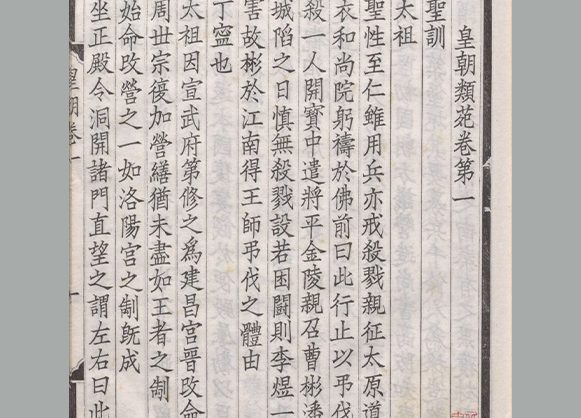 皇朝類苑卷第一
聖訓
太祖
聖性至仁雖用兵亦戒殺戮親征太原道
衣和尚院躬禱於佛前曰此行止以弔伐
殺一人開寶中遣將平金陵親召曹彬潘
城陷之日慎無殺戮設若困鬪則李煜一
害故彬於江南得王師弔伐之體由
丁寍也
太祖因宣武府第修之爲建昌宮晋改命
周世宗復加營繕猶未盡如王者之制
始命改營之一如洛陽宮之制旣成
坐正殿令洞開諸門直望之謂左右曰此
皇朝卷一